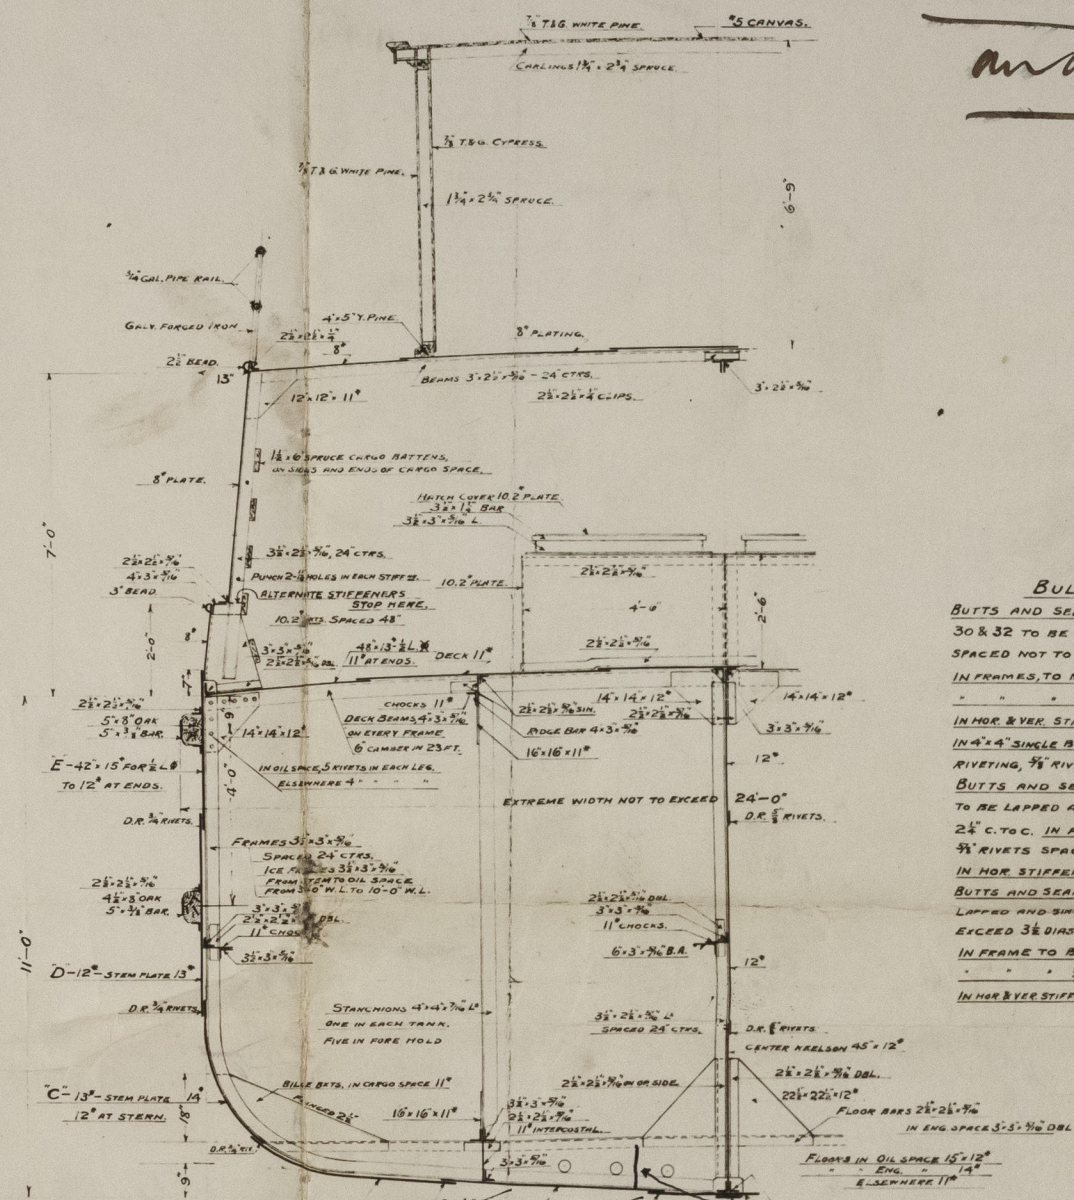 ⅞ T.&G. WHITE PINE.
#5 CANVAS.
CARLINGS 1¾" × 2¾" SPRUCE
⅞ T.&G. CYPRESS.
⅞ T.&G. WHITE PINE.
1¾" × 2¼" SPRUCE.
6'-9"
GAL. PIPE RAIL.
GALV. FORGED IRON
4"×5" Y. PINE.
2½"×2½"×¼"
8#
8# PLATING.
2½" BEAD.
13"
BEAMS 3"×2½"×3/16" - 24" CTRS.
2½"×2½"×¼" CLIPS.
3"×2½"×5/16"
12"×12"×11#
1½"×6" SPRUCE CARGO BATTENS,
ON SIDES AND ENDS OF CARGO SPACE.
8# PLATE.
HATCH COVER 10.2# PLATE
3½"×1¼" BAR
3½"×3"×5/16" L.
7'-0"
3½"×2½"×5/16", 24" CTRS.
2½"×2½"×5/16"
4"×3"×5/16"
3" BEAD.
HOLES IN EACH STIFF'R.
10.2# PLATE.
2½"×2½"×5/16"
ALTERNATE STIFFENERS
STOP HERE.
4'-6"
2'-6"
10.2# BKTS. SPACED 48"
8#
2'-0"
3"×3"×5/16"
2½"×2½"×5/16" DBL
11# AT ENDS.
DECK 11#
2½"×2½"×5/16"
7"
2½"×2½"×5/16"
5"×8" OAK
BAR.
14"×14"×12#
CHOCKS 11#
DECK BEAMS, 4"×3"×5/16"
ON EVERY FRAME
6" CAMBER IN 23 FT.
2½"×2½"×5/16" SIN.
RIDGE BAR 4"×3"×5/16"
16"×16"×11#
14"×14"×12#
2½"×2½"×5/16"
14"×14"×12#
3"×3"×5/16"
E-42"×15# FOR ½ L
TO 12# AT ENDS.
IN OIL SPACE, 5 RIVETS IN EACH LEG.
ELSEWHERE 4 " " " "
4'-0"
12#
EXTREME WIDTH NOT TO EXCEED 24'-0"
D.R. ¾" RIVETS.
D.R. ⅝" RIVETS.
FRAMES 3½"×3"×5/16"
SPACED 24" CTRS.
ICE FRAMES 3½"×3"×5/16"
FROM STEM TO OIL SPACE
FROM W.L. TO 10'-0" W.L.
2½"×2½"×5/16"
4½"×8" OAK
BAR.
DBL.
2½"×2½"×5/16" DBL
3"×3"×5/16"
11# CHOCKS.
6"×3"×5/16" B.A.
3½"×3"×5/16"
11'-0"
"D"-12#-STEM PLATE 13#
12#
D.R. ¾" RIVETS.
STANCHIONS 4"×4"×7/16" L
ONE IN EACH TANK.
FIVE IN FORE HOLD
3½"×2½"×5/16" L
SPACED 24" CTRS.
RIVETS
CENTER KEELSON 45"×12#.
"C"-13#-STEM PLATE 14#
12# AT STERN.
18"
BILGE BKTS. IN CARGO SPACE 11#
FLANGED 2½"
16"×16"×11#
2½"×2½"×5/16" ON OR SIDE
2½"×2½"×5/16" DBL.
22½"×22½"×12#
3½"×3"×5/16"
2½"×2½"×5/16"
11# INTERCOSTAL.
FLOOR BARS 2½"×2½"×5/16"
IN ENG. SPACE 3"×3"×5/16" DBL
3"×3"×5/16"
FLOORS IN OIL SPACE 15"×12#
" " ENG. " 14#
ELSEWHERE 11#
9"
BUL
BUTTS AND SE
30 & 32 TO BE
SPACED NOT TO
IN FRAMES, TO
" " "
IN HOR. & VER. STI
IN 4"×4" SINGLE B
RIVETING, ⅝" RIV
BUTTS AND SE
TO BE LAPPED A
2¼" C. TO C. IN
⅝" RIVETS SPA
IN HOR. STIFFE
BUTTS AND SEA
LAPPED AND SIN
EXCEED 3½ DIAS
IN FRAME TO B
" " "
IN HOR & VER. STIFF